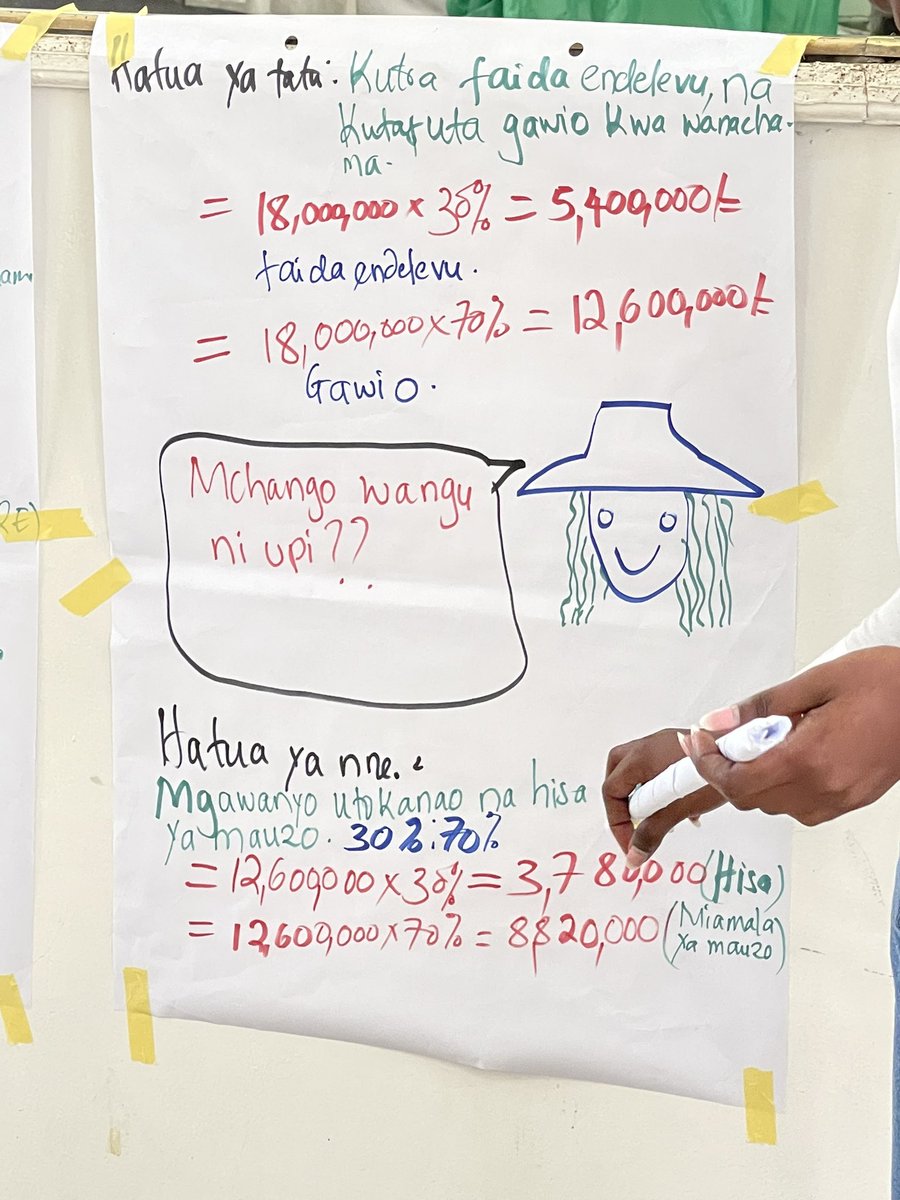 Hatua ya tatu: Kutoa faida endelevu, na
Kutafuta gawio kwa wanacha-
ma.
= 18,000,000 x 30% = 5,400,000/=
faida endelevu.
= 18,000,000 x 70% = 12,600,000/=
Gawio.
Mchango wangu
ni upi??
Hatua ya nne.
Mgawanyo utokanao na hisa
ya mauzo. 30%:70%
= 12,600,000 x 30% = 3,780,000 (Hisa)
= 12,600,000 x 70% = 8,820,000 (Miamala
ya mauzo)